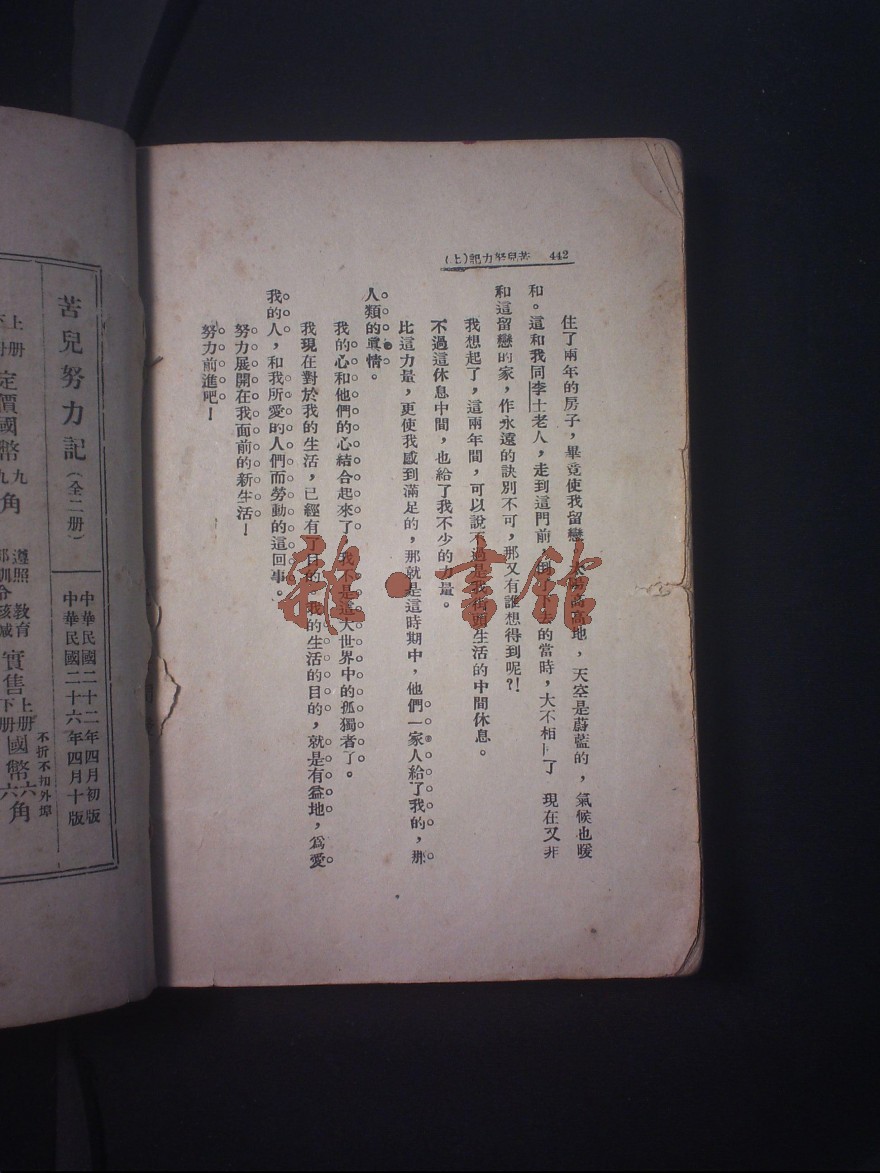 442 苦兒努力記(上)
住了兩年的房子，畢竟使我留戀 太陽高高地，天空是蔚藍的，氣候也暖
和。這和我同李士老人，走到這門前，倒了下去的當時，大不相同了 現在又非
和這留戀的家，作永遠的訣別不可，那又有誰想得到呢？！
我想起了，這兩年間，可以說不過是我街頭生活的中間休息。
不過這休息中間，也給了我不少的力量。
比這力量，更使我感到滿足的，那就是這時期中，他們一家人給了我的，那
人類的眞情。
我的心和他們的心結合起來了 我不是這大世界中的孤獨者了。
我現在對於我的生活，已經有了目的 我的生活的目的，就是有益地，爲愛
我的人，和我所愛的人們而勞動的這回事。
努力展開在我面前的新生活！
努力前進吧！
雜·書館
中華民國二十二年四月初版
中華民國二十六年四月十版
苦兒努力記（全二册）
上册
定價國幣九角
遵照教育
實售上册國幣六角
下册
不折不扣外埠